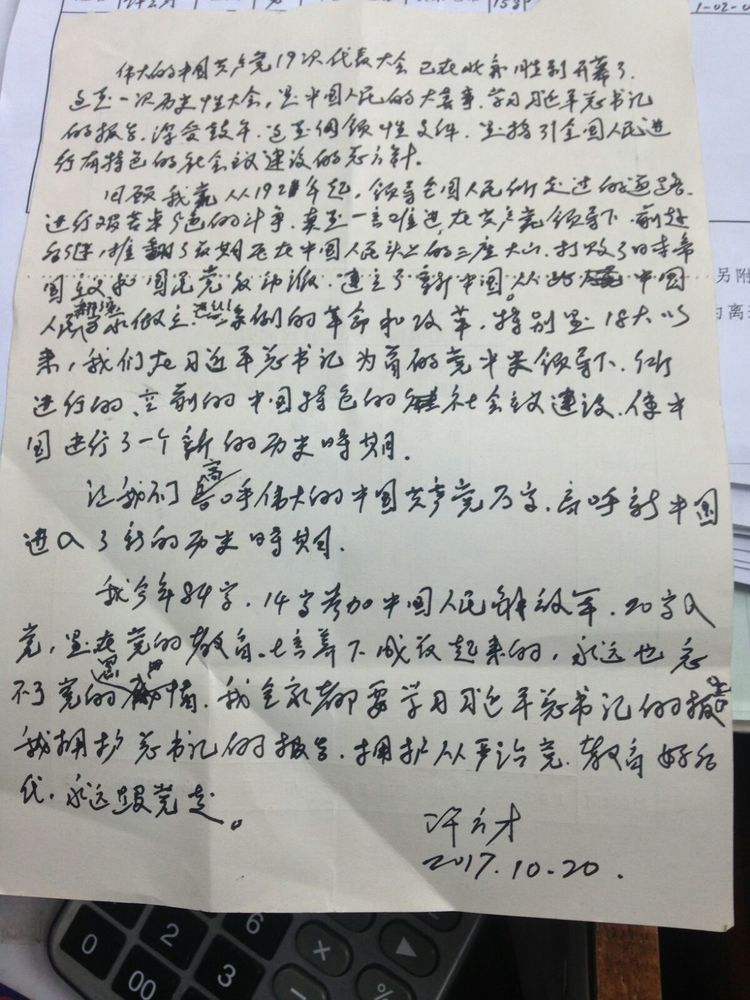 1-02-0
伟大的中国共产党19次代表大会已在北京胜利开幕了。
这是一次历史性大会,是中国人民的大喜事。学习习近平总书记
的报告,深受鼓午。这是纲领性文件,是指引全国人民进
行有特色的社会主义建设的总方针。
回顾我党从1921年起,领导全国人民所走过的道路,
进行艰苦卓绝的斗争,真是一言难进,在共产党领导下,前赴
后继,推翻了长期压在中国人民头上的三座大山,打败了日本帝
国主义和国民党反动派,建立了新中国。从 中国
人民 做主, 的革命和改革,特别是18大以
来,我们在习近平总书记为首的党中央领导下,所
进行的、空前的中国特色的社会主义建设,使中
国进行了一个新的历史時期。
让我们高呼伟大的中国共产党万岁,高呼新中国
进入了新的历史時期。
我今年84岁,14岁参加中国人民解放军,20岁入
党,是在党的教育、培养下成长起来的,永远也忘
不了党的恩情,我全家都要学习习近平总书记的报告
我拥护总书记的报告,拥护从严治党,教育好后
代,永远跟党走。
许云才
2017.10.20.
另附
为离
0
2
6
×
▶
00
3
−